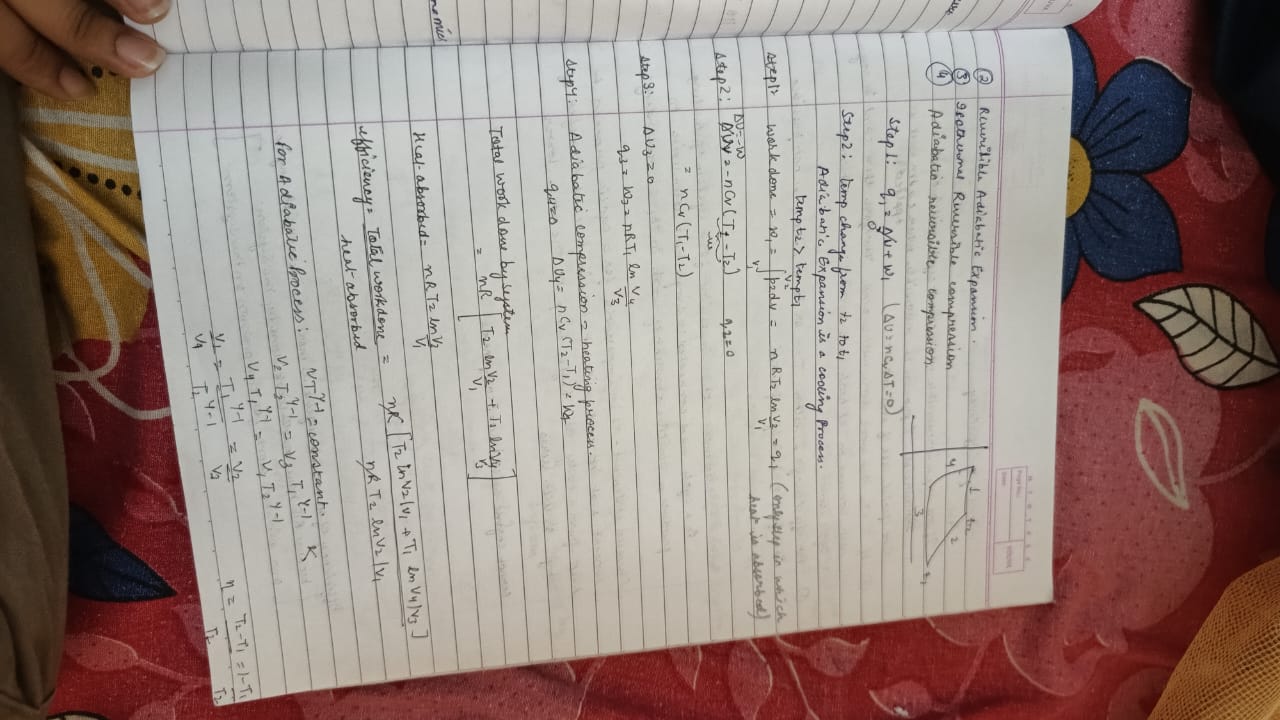 ② Reversible Adiabatic Expansion.
③ Isothermal Reversible compression
④ Adiabatic reversible compression
1
t2
4
2
3
t1
Step1: q1 = ΔU + w1 (ΔU = nCvΔT = 0)
0
Step2: temp change from t2 to t1
Adiabatic Expansion is a cooling Process.
temp t2 > temp t1
Step1: work done = w1 = ∫ pdv = nRT2 ln V2/V1 = q1 (only step in which heat is absorbed)
ΔU = -W
Step2: ΔU = -nCv(T1 - T2) q2 = 0
= nCv(T1-T2)
Step3: ΔU3 = 0
q3 = W3 = nRT1 ln V4/V3
Step4: Adiabatic compression = heating process.
q4 = 0 ΔU4 = nCv(T2-T1) = W4
Total work done by system
= nR [T2 ln V2/V1 + T1 ln V4/V3]
Heat absorbed = nRT2 ln V2/V1
efficiency = Total work done / heat absorbed = nR [T2 ln V2/V1 + T1 ln V4/V3] / nRT2 ln V2/V1
for Adiabatic Process: VT γ-1 = constant
V2 T2 γ-1 = V3 T1 γ-1
V4 T1 γ-1 = V1 T2 γ-1
V1/V4 = T1 γ-1 / T2 γ-1 = V2/V3
η = T2-T1/T2 = 1-T1/T2